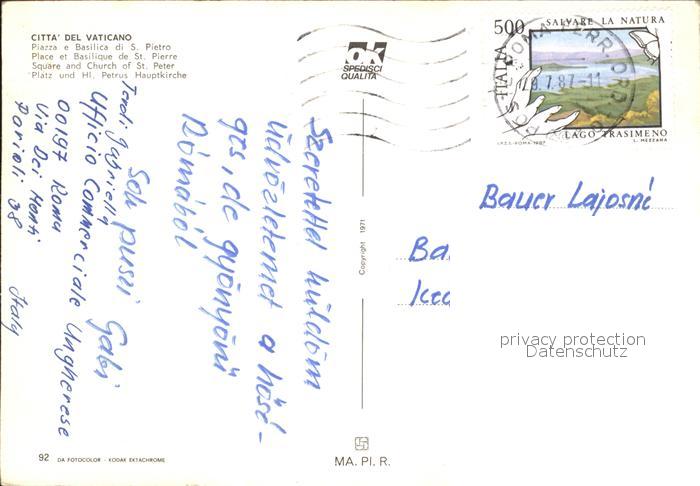 CITTA' DEL VATICANO
Piazza e Basilica di S. Pietro
Place et Basilique de St. Pierre
Square and Church of St. Peter
Platz und Hl. Petrus Hauptkirche
OK
SPEDISCI
QUALITÀ
500
SALVARE LA NATURA
ITALIA
LAGO TRASIMENO
I.P.Z.S.-ROMA-1987
L. MEZZANA
ROMA FERR
.7.87-11
Szeretettel küldöm
üdvözletemet a hősé-
ges, de gyönyörű
Rómából
Sok puszi Gabi
Gabriella
Ufficio Commerciale Ungherese
00197 Roma
Via Dei Monti
Parioli 38
Italy
Bauer Lajosné
Ba
privacy protection
Datenschutz
Copyright 1971
92 DA FOTOCOLOR - KODAK EKTACHROME
MA. PI. R.